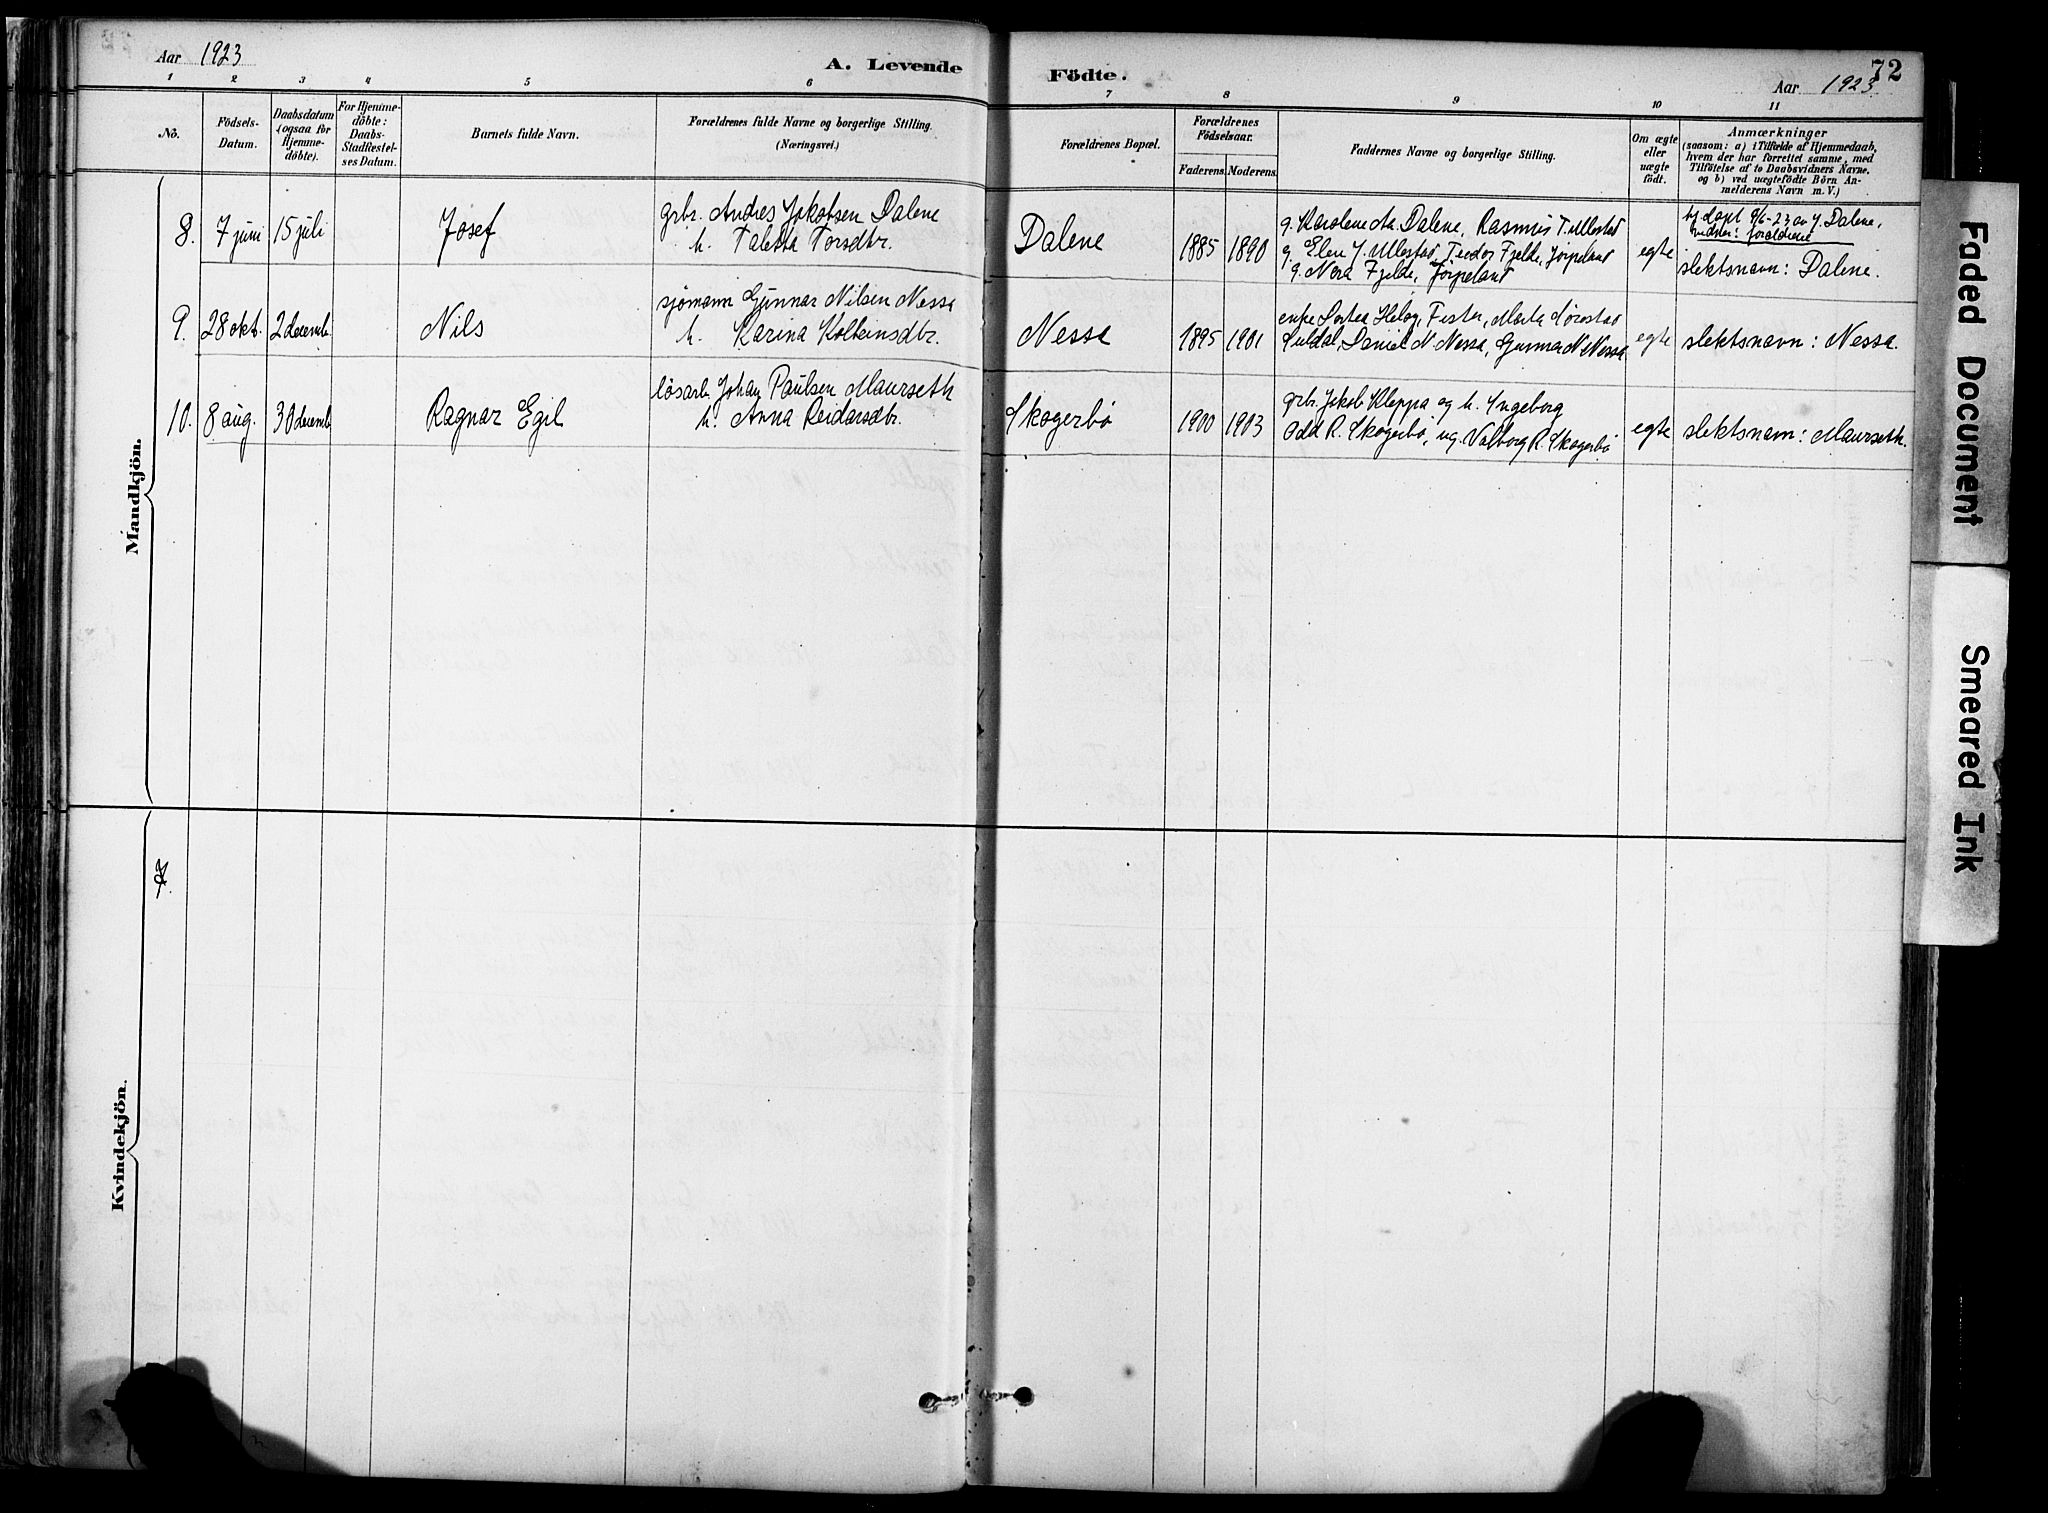 Aar 1923
A. Levende Födte.
Aar 1923
72
1 2 3 4 5 6 7 8 9 10 11
No.
Födsels-Datum.
Daabsdatum (ogsaa for Hjemme-döbte).
For Hjemme-döbte: Daabs-Stadfæstel-ses Datum.
Barnets fulde Navn.
Forældrenes fulde Navne og borgerlige Stilling.
(Næringsvei.)
Forældrenes Bopæl.
Forældrenes Födselsaar.
Faderens. Moderens.
Faddernes Navne og borgerlige Stilling.
Om ægte eller uægte födt.
Anmærkninger
(saasom: a) i Tilfælde af Hjemmedaab,
hvem der har forrettet samme, med
Tilföielse af to Daabsvidners Navne.
og b) ved uægtefödte Börn An-
melderens Navn m. V.)
Mandkjön.
8. 7 juni 15 juli Josef
grbr. Andres Jakobsen Dalene
h. Taletta Torsdtr.
Dalene 1885 1890
g. Karolene Aa. Dalene, Rasmus T. Ullestad
g. Elen J. Ullestad, Teodor Fjelde, Jørpeland
g. Nora Fjelde, Jørpeland
egte
hj.døpt 9/6-23 av J. Dalene,
vidner: foreldrene
slektsnavn: Dalene.
9. 28 okt. 2 decemb Nils
sjømann Gunnar Nilsen Nessa
h. Karina Kolbeinsdtr.
Nessa 1895 1901
enke Heløy, Fister, Marta
Suldal, Daniel N. Nessa, Gunnar N. Nessa
egte
slektsnavn: Nessa.
10. 8 aug. 30 decemb Ragnar Egil
løsarb. Johan Paulsen Maurseth
h. Anna Reidarsdtr.
Skogerbø 1900 1903
grbr. Jakob Kleppa og h. Ingeborg
Odd R. Skogerbø, ug. Valborg R. Skogerbø
egte
slektsnavn: Maurseth.
Kvindekjön.
Faded Document
Smeared Ink